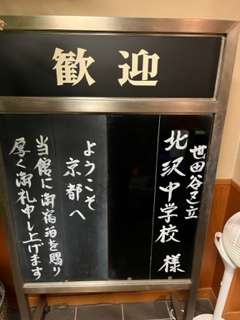 歓迎
世田谷区立
北沢中学校 様
ようこそ
京都へ
当館に御宿泊を賜り
厚く御礼申し上げます